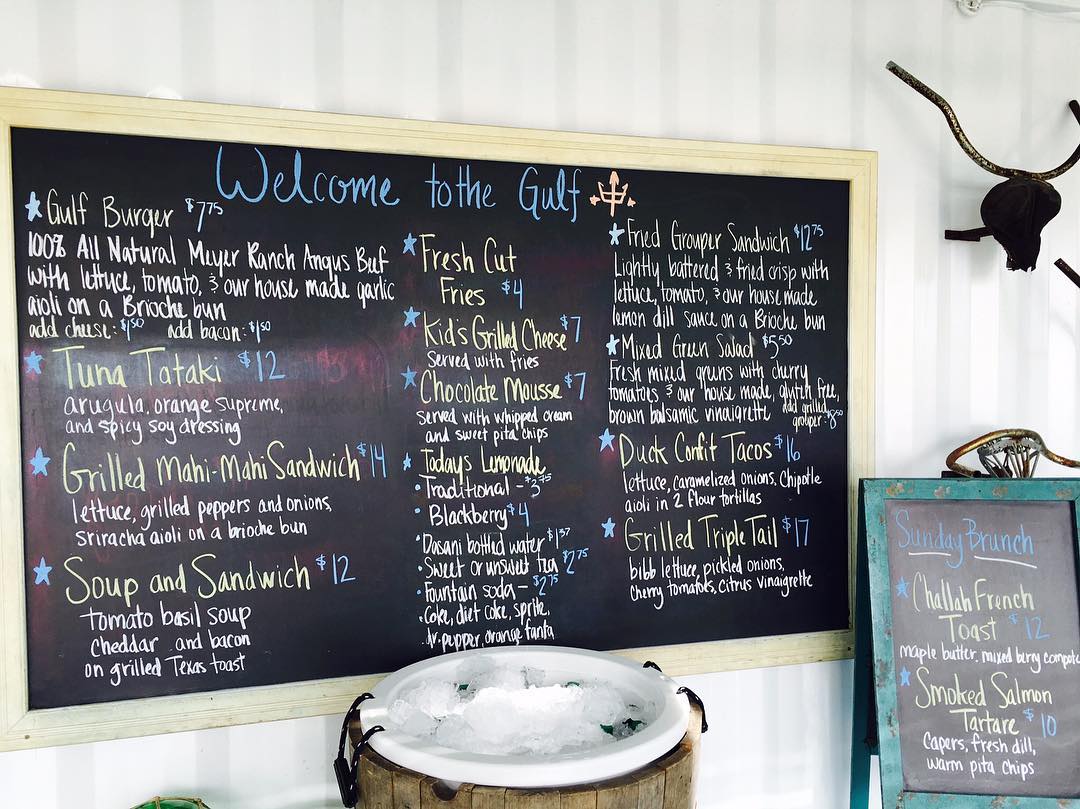 Welcome to the Gulf
Gulf Burger $7.75
100% All Natural Meyer Ranch Angus Beef
with lettuce, tomato, & our house made garlic
aioli on a Brioche bun
add cheese: $1.50 add bacon: $1.50
Tuna Tataki $12
arugula, orange supreme,
and spicy soy dressing
Grilled Mahi-Mahi Sandwich $14
lettuce, grilled peppers and onions,
sriracha aioli on a brioche bun
Soup and Sandwich $12
tomato basil soup
cheddar and bacon
on grilled Texas toast
Fresh Cut
Fries $4
Kid's Grilled Cheese $7
served with fries
Chocolate Mousse $7
served with whipped cream
and sweet pita chips
Todays Lemonade
Traditional - $3.75
Blackberry $4
Dasani bottled water $1.37
Sweet or unsweet tea $2.75
Fountain soda - $2.75
Coke, diet coke, sprite,
dr. pepper, orange fanta
Fried Grouper Sandwich $12.75
Lightly battered & fried crisp with
lettuce, tomato, & our house made
lemon dill sauce on a Brioche bun
Mixed Green Salad $5.50
Fresh mixed greens with cherry
tomatoes & our house made, gluten free,
brown balsamic vinaigrette add grilled
grouper: $8.50
Duck Confit Tacos $16
lettuce, caramelized onions, Chipotle
aioli in 2 flour tortillas
Grilled Triple Tail $17
bibb lettuce, pickled onions,
cherry tomatoes, citrus vinaigrette
Sunday Brunch
Challah French
Toast $12
maple butter, mixed berry compote
Smoked Salmon
Tartare $10
Capers, fresh dill,
warm pita chips